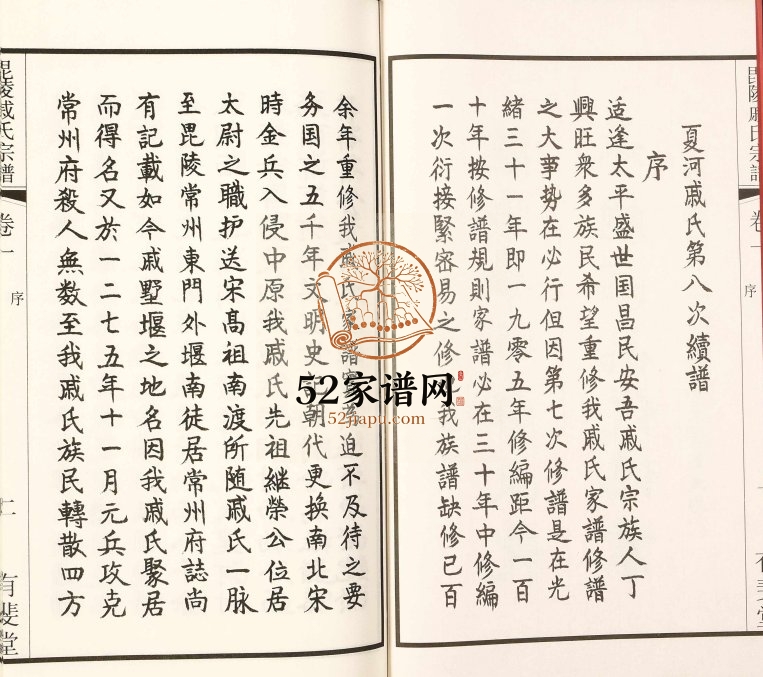 毘陵戚氏宗譜
卷一
序
夏河戚氏第八次續譜
序
适逢太平盛世国昌民安吾戚氏宗族人丁
興旺衆多族民希望重修我戚氏家譜修譜
之大事势在必行但因第七次修譜是在光
緒三十一年即一九零五年修編距今一百
十年按修譜規則家譜必在三十年中修編
一次衍接緊密易之修我族譜缺修已百
余年重修我戚氏家譜迫不及待之要
务国之五千年文明史朝代更换南北宋
時金兵入侵中原我戚氏先祖継榮公位居
太尉之職护送宋髙祖南渡所随戚氏一脉
至毘陵常州東門外堰南徒居常州府誌尚
有記載如今戚墅堰之地名因我戚氏聚居
而得名又於一二七五年十一月元兵攻克
常州府殺人無数至我戚氏族民轉散四方
毘陵戚氏宗譜
卷一
序
二
有斐堂
52家谱网
52jiapu.com